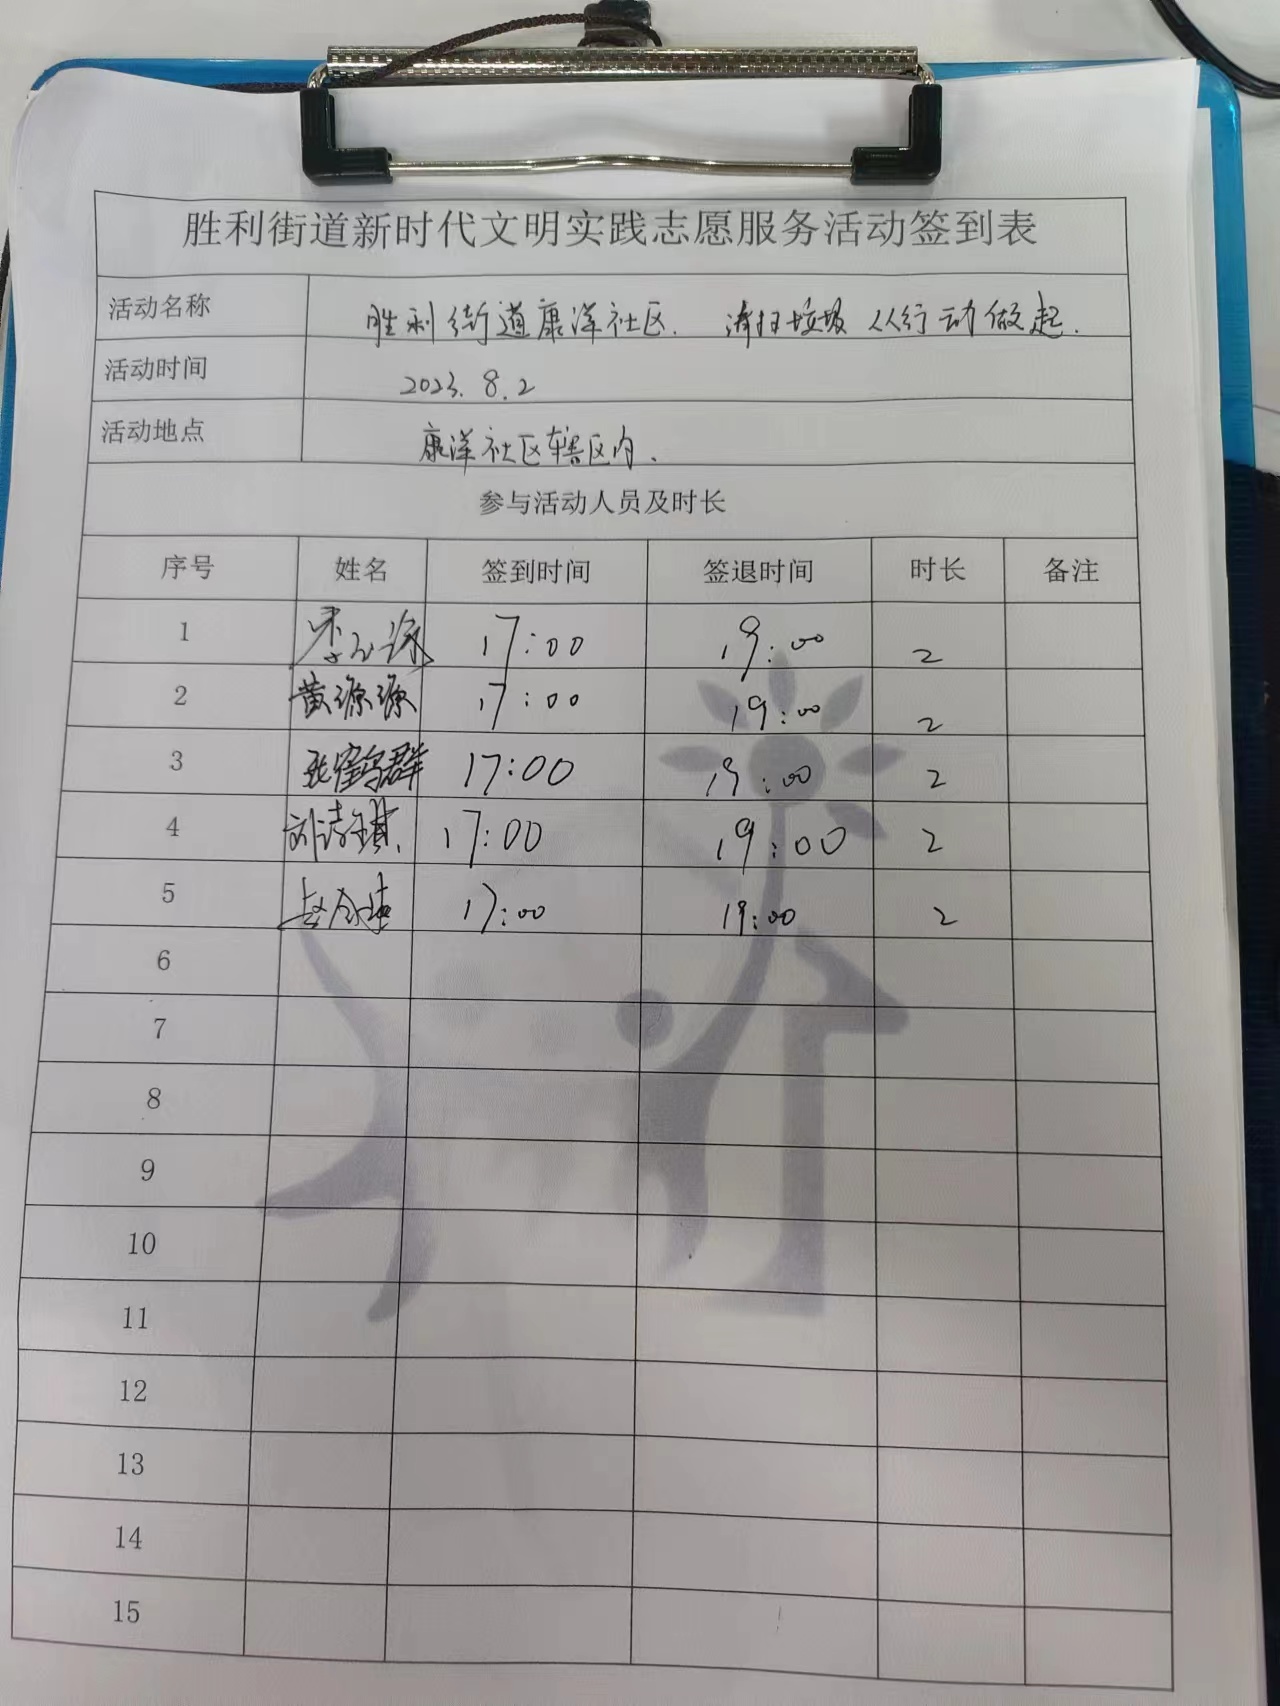 胜利街道新时代文明实践志愿服务活动签到表
活动名称 胜利街道康洋社区. 清扫垃圾 从行动做起.
活动时间 2023.8.2
活动地点 康洋社区辖区内.
参与活动人员及时长
序号 姓名 签到时间 签退时间 时长 备注
1 17:00 19:00 2
2 黄源源 17:00 19:00 2
3 17:00 19:00 2
4 17:00 19:00 2
5 17:00 19:00 2
6
7
8
9
10
11
12
13
14
15